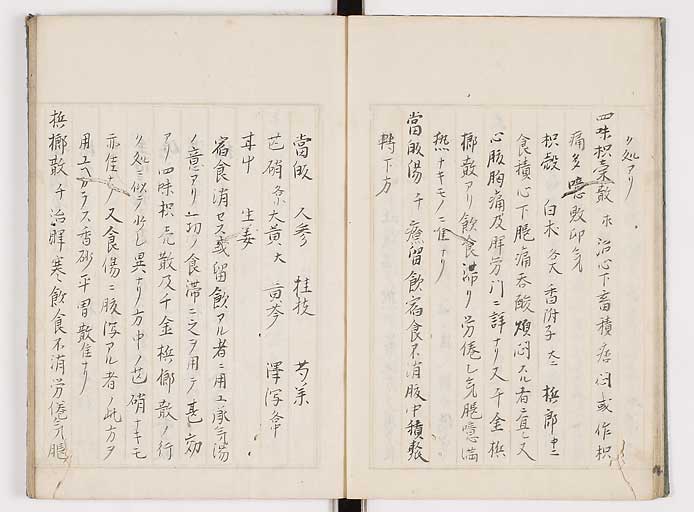 ノ処アリ
四味枳売散 本 治心下畜積痞悶或作枳
痛多噫敗卵気
枳殻 白朮 各大 香附子 大 檳榔 中
食積心下腿痛呑酸煩悶スル者ニ宜シ又
心腹胸痛及脾労門ニ詳ナリ又千金檳
榔散アリ飲食滞リ労倦シ気脹噫満
熱ナキモノニ佳ナリ
當皈湯 千 療留飲宿食不消腹中積聚
轉下方
當皈 人参 桂枝 芍薬
芒硝 各 大黄 大 黄芩 澤瀉 各中
甘中 生姜
宿食消セス或留飲アル者ニ用ユ承気湯
ノ意アリ一切ノ食滞ニ之ヲ用テ甚タ効
アリ四味枳売散及千金檳榔散ノ行
ク処ニ似テ少シ異ナリ方中ノ芒硝ナキモ
亦佳ナリ又食傷ニ腹瀉アル者ノ此方ヲ
用ユヘカラス香砂平胃散佳ナリ
檳榔散 千 治脾寒飲食不消労倦気脹